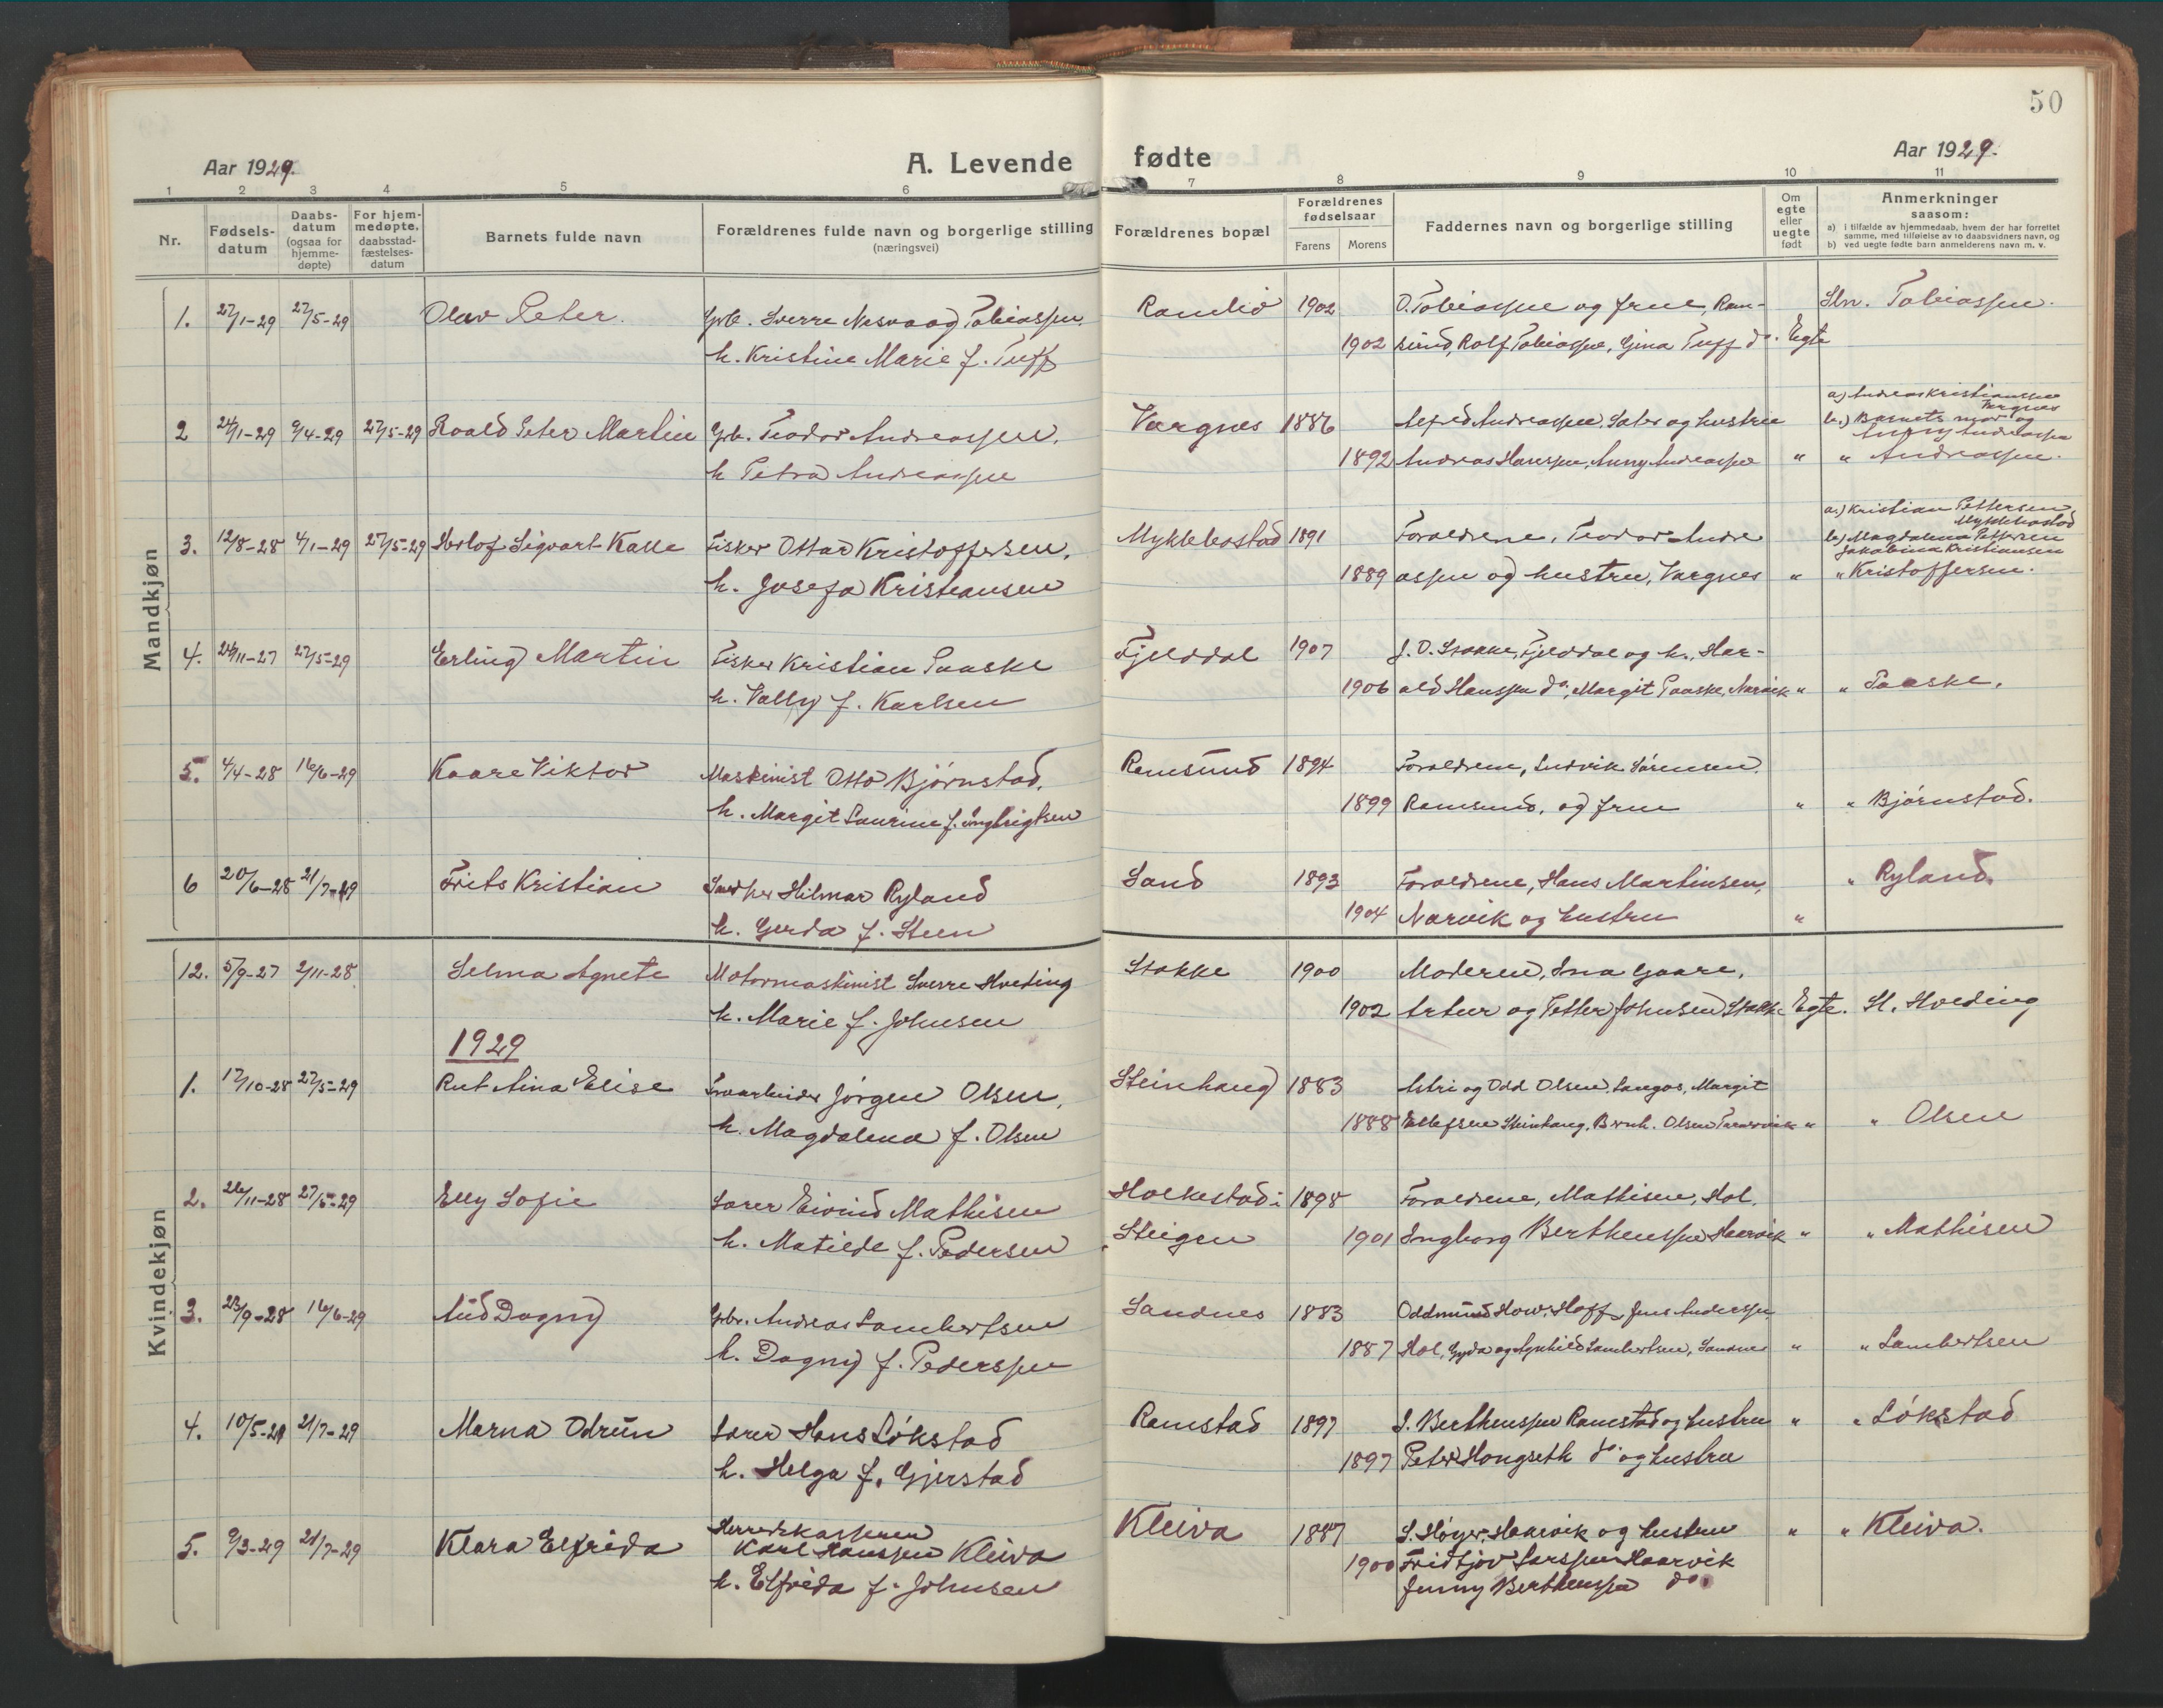 50
Aar 1929.
A. Levende fødte
Aar 1929.
1 2 3 4 5 6 7 8 9 10 11
Nr.
Fødsels-
datum
Daabs-
datum
(ogsaa for
hjemme-
døpte)
For hjem-
medøpte,
daabsstad-
fæstelses-
datum
Barnets fulde navn
Forældrenes fulde navn og borgerlige stilling
(næringsvei)
Forældrenes bopæl
Forældrenes
fødselsaar
Farens Morens
Faddernes navn og borgerlige stilling
Om
egte
eller
uegte
født
Anmerkninger
saasom:
a) i tilfælde av hjemmedaab, hvem der har forrettet
samme, med tilføielse av to daabsvidners navn, og
b) ved uegte fødte barn anmelderens navn m. v.
Mandkjøn
1. 27/1-29 27/5-29 Olav Peter. Grb. Sverre Nesvaag Tobiassen, Ramlid 1902 O. Tobiassen og frue, Ram- Sln. Tobiassen.
h. Kristine Marie f. Tuff 1902 sund, Rolf Tobiassen, Gina Tuff do. Egte
a) Andreas Kristianssen
Vargnes
2 24/1-29 9/4-29 27/5-29 Roald Peter Martin Grb. Teodor Andreassen, Vargnes 1886 Alfred Andreassen, Sater og hustru b.) Barnets mor og
Anny Andreassen
h Petra Andreassen 1892 Andreas Hanssen, Anny Andreassen " " Andreassen.
a.) Kristian Pettersen
Myklebostad
3. 12/8-28 4/1-29 27/5-29 Herlof Sigvart Kalle Fisker Ottar Kristoffersen, Myklebostad 1891 Forældrene, Teodor Andre b) Magdalena Pettersen
Jakobina Kristiansen
h. Josefa Kristiansen 1889 assen og hustru, Vargnes " " Kristoffersen.
4. 24/11-27 27/5-29 Erling Martin Fisker Kristian Paaske Fjelddal 1907 J. O. Stokke, Fjelddal og h., Har-
h. Vally f. Karlsen 1906 ald Hanssen do, Margit Paaske, Narvik " " Paaske.
5. 4/4-28 16/6-29 Kaare Viktor Maskinist Otto Bjørnstad, Ramsund 1894 Forældrene, Ludvik Sørensen,
h. Margit Laurine f. Ingbrigtsen 1899 Ramsund, og frue " " Bjørnstad.
6 20/6-28 21/7-29 Frits Kristian Hilmar Ryland Sand 1893 Forældrene, Hans Martinsen, " Ryland.
h. Gerda f. Steen 1904 Narvik og hustru "
Kvindekjøn
12. 5/9-27 2/11-28 Selma Agnete Motormaskinist Sverre Hveding Stokke 1900 Moderen, Ina Gaare,
h. Marie f. Johnsen 1902 Artur og Petter Johnsen Stokke Egte. Sl. Hveding
1929
1. 17/10-28 27/5-29 Rut Aina Elise Jørgen Olsen, Steinhaug 1883 Astri og Odd Olsen, Sangos, Margit
h. Magdalena f. Olsen 1888 Ellefsen Steinhaug, Bernh. Olsen " " Olsen
2. 26/11-28 27/5-29 Elly Sofie Lærer Eivind Mathisen Holkestad i 1898 Forældrene, Mathisen, Hol,
h. Matilde f. Pedersen Steigen 1901 Ingborg Berthenssen Haarvik " " Mathisen
3. 23/9-28 16/6-29 Aud Dagny Grbr. Andreas Lambertsen Sandnes 1883 Oddmund Hoff, Jens Anderssen,
h. Dagny f. Pederssen 1887 Hol, Gyda og Agnhild Lambertsen, Sandnes " " Lambertsen
4. 10/5-29 21/7-29 Marna Odrun Lærer Hans Løkstad Ramstad 1897 S. Berthenssen Ramstad og hustru " " Løkstad
h. Helga f. Gjerstad 1897 Peter Hongseth do og hustru
Herredskasserer
5. 9/3-29 21/7-29 Klara Elfrida Karl Hanssen Kleiva Kleiva 1887 S. Høyer, Haarvik og hustru " " Kleiva.
h. Elfrida f. Johnsen 1900 Fridtjov Larssen Haarvik
Jenny Berthenssen do.